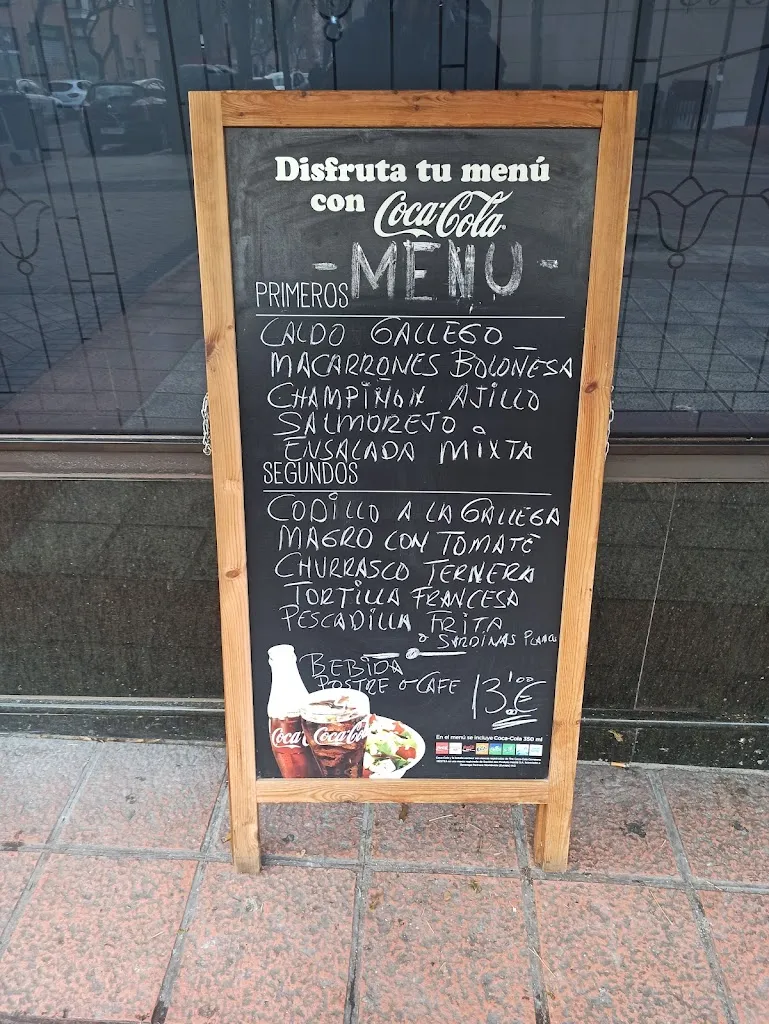 Disfruta tu menú
con Coca-Cola
- MENU -
PRIMEROS
CALDO GALLEGO
MACARRONES BOLOÑESA
CHAMPIÑON AJILLO
SALMOREJO
ENSALADA MIXTA
SEGUNDOS
CODILLO A LA GALLEGA
MAGRO CON TOMATE
CHURRASCO TERNERA
TORTILLA FRANCESA
PESCADILLA FRITA
o SARDINAS
BEBIDA
POSTRE o CAFE 13'00€
Coca Coca-Cola
En el menú se incluye Coca-Cola 350 ml